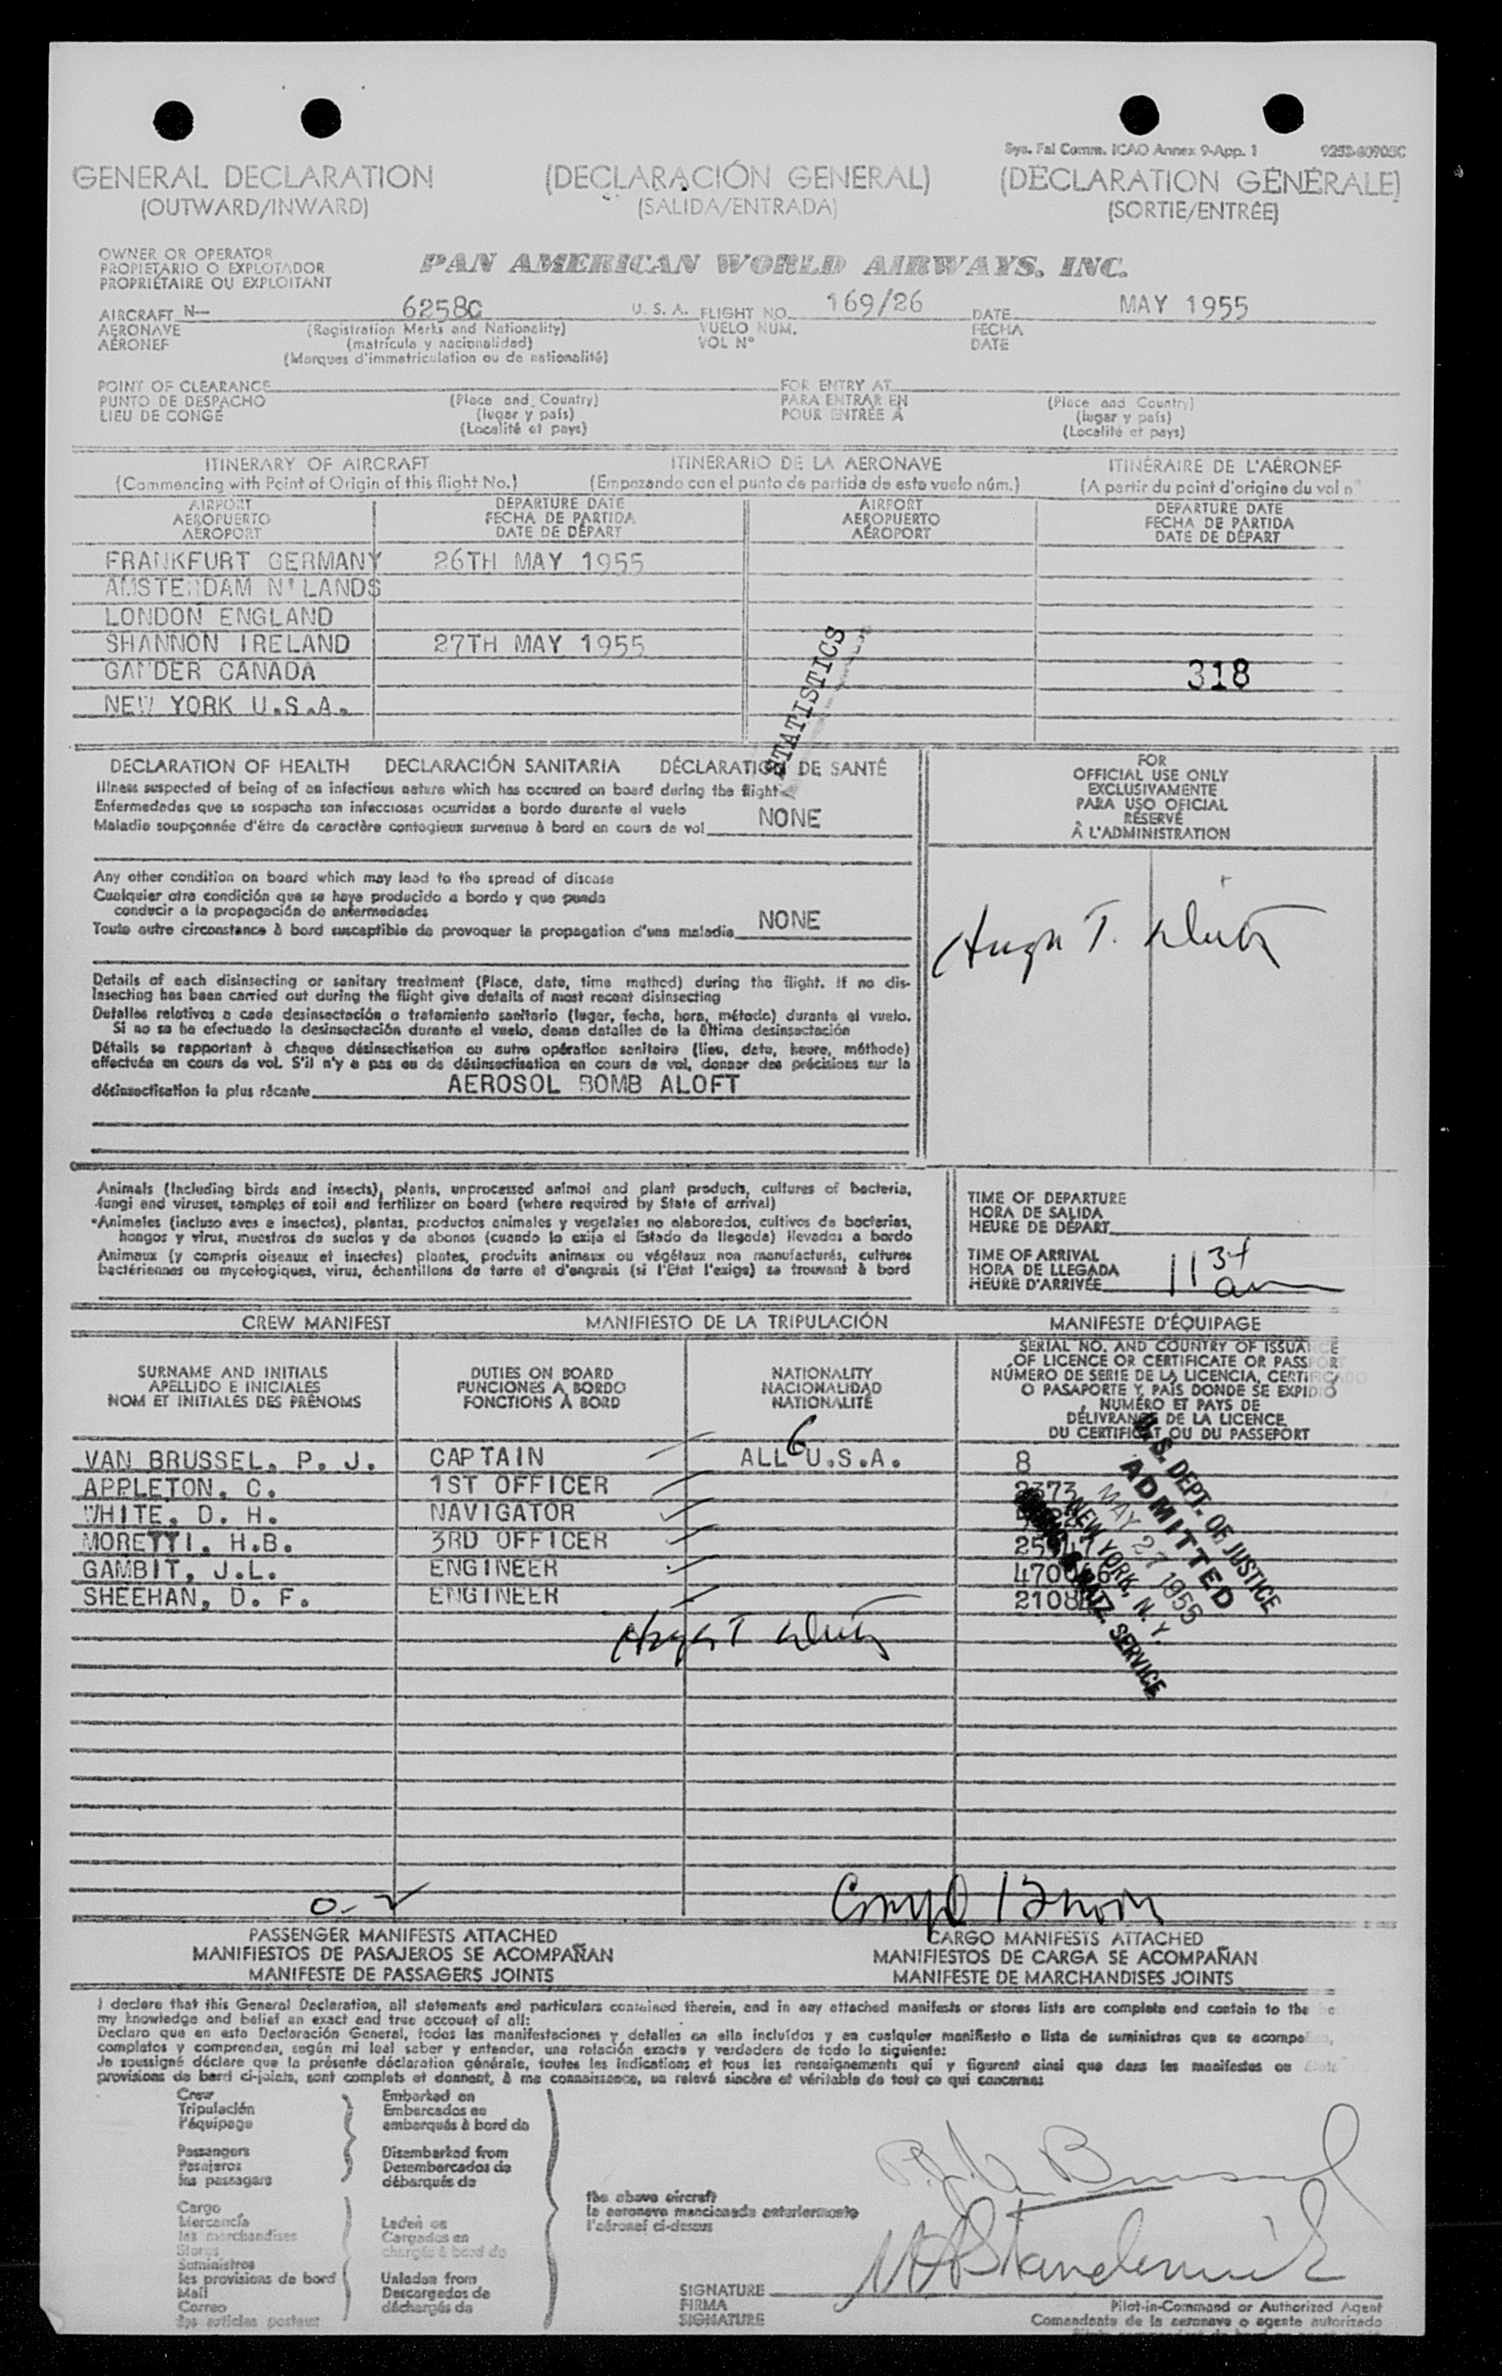 Sys. Fal Comm. ICAO Annex 9-App. 1 9253-60905C
GENERAL DECLARATION (DECLARACIÓN GENERAL) (DÉCLARATION GÉNÉRALE)
(OUTWARD/INWARD) (SALIDA/ENTRADA) (SORTIE/ENTRÉE)
OWNER OR OPERATOR
PROPIETARIO O EXPLOTADOR
PROPRIÉTAIRE OU EXPLOITANT
PAN AMERICAN WORLD AIRWAYS, INC.
AIRCRAFT N— 6258C U. S. A. FLIGHT NO. 169/26 DATE MAY 1955
AERONAVE (Registration Marks and Nationality) VUELO NUM. FECHA
AÉRONEF (matrícula y nacionalidad) VOL Nº DATE
(Marques d'immatriculation ou de nationalité)
POINT OF CLEARANCE FOR ENTRY AT
PUNTO DE DESPACHO (Place and Country) PARA ENTRAR EN (Place and Country)
LIEU DE CONGÉ (lugar y país) POUR ENTRÉE À (lugar y país)
(Localité et pays) (Localité et pays)
ITINERARY OF AIRCRAFT ITINERARIO DE LA AERONAVE ITINÉRAIRE DE L'AÉRONEF
(Commencing with Point of Origin of this flight No.) (Empezando con el punto de partida de este vuelo núm.) (A partir du point d'origine du vol n°
AIRPORT DEPARTURE DATE AIRPORT DEPARTURE DATE
AEROPUERTO FECHA DE PARTIDA AEROPUERTO FECHA DE PARTIDA
AÉROPORT DATE DE DÉPART AÉROPORT DATE DE DÉPART
FRANKFURT GERMANY 26TH MAY 1955
AMSTERDAM N'LANDS
LONDON ENGLAND
SHANNON IRELAND 27TH MAY 1955
GANDER CANADA 318
NEW YORK U.S.A.
STATISTICS
DECLARATION OF HEALTH DECLARACIÓN SANITARIA DÉCLARATION DE SANTÉ
Illness suspected of being of an infectious nature which has occured on board during the flight
Enfermedades que se sospecha son infecciosas ocurridas a bordo durante el vuelo
Maladie soupçonnée d'être de caractère contagieux survenue à bord en cours de vol NONE
FOR
OFFICIAL USE ONLY
EXCLUSIVAMENTE
PARA USO OFICIAL
RÉSERVÉ
À L'ADMINISTRATION
Any other condition on board which may lead to the spread of disease
Cualquier otra condición que se haya producido a bordo y que pueda
conducir a la propagación de enfermedades
Toute autre circonstance à bord susceptible de provoquer la propagation d'une maladie NONE
Hugh T.
Details of each disinsecting or sanitary treatment (Place, date, time method) during the flight. If no dis-
insecting has been carried out during the flight give details of most recent disinsecting
Detalles relativos a cada desinsectación o tratamiento sanitario (lugar, fecha, hora, método) durante el vuelo.
Si no se ha efectuado la desinsectación durante el vuelo, dense detalles de la última desinsectación
Détails se rapportant à chaque désinsectisation ou autre opération sanitaire (lieu, date, heure, méthode)
effectuée en cours de vol. S'il n'y a pas eu de désinsectisation en cours de vol, donner des précisions sur la
désinsectisation la plus récente AEROSOL BOMB ALOFT
Animals (Including birds and insects), plants, unprocessed animal and plant products, cultures of bacteria,
fungi and viruses, samples of soil and fertilizer on board (where required by State of arrival)
Animales (incluso aves e insectos), plantas, productos animales y vegetales no elaborados, cultivos de bacterias,
hongos y virus, muestras de suelos y de abonos (cuando lo exija el Estado de llegada) llevados a bordo
Animaux (y compris oiseaux et insectes) plantes, produits animaux ou végétaux non manufacturés, cultures
bactériennes ou mycologiques, virus, échantillons de terre et d'engrais (si l'Etat l'exige) se trouvant à bord
TIME OF DEPARTURE
HORA DE SALIDA
HEURE DE DÉPART
TIME OF ARRIVAL
HORA DE LLEGADA
HEURE D'ARRIVÉE 11 34 am
CREW MANIFEST MANIFIESTO DE LA TRIPULACIÓN MANIFESTE D'ÉQUIPAGE
SURNAME AND INITIALS DUTIES ON BOARD NATIONALITY
APELLIDO E INICIALES FUNCIONES A BORDO NACIONALIDAD
NOM ET INITIALES DES PRÉNOMS FONCTIONS À BORD NATIONALITÉ
SERIAL NO. AND COUNTRY OF ISSUANCE
OF LICENCE OR CERTIFICATE OR PASSPORT
NÚMERO DE SERIE DE LA LICENCIA, CERTIFICADO
O PASAPORTE Y PAÍS DONDE SE EXPIDIÓ
NUMÉRO ET PAYS DE
DÉLIVRANCE DE LA LICENCE
DU CERTIFICAT OU DU PASSEPORT
VAN BRUSSEL, P. J. CAPTAIN ALL 6 U.S.A. 8
APPLETON, C. 1ST OFFICER 2373
WHITE, D. H. NAVIGATOR
MORETTI, H.B. 3RD OFFICER
GAMBIT, J.L. ENGINEER
SHEEHAN, D. F. ENGINEER
U.S. DEPT. OF JUSTICE
ADMITTED
MAY 27 1955
NEW YORK, N. Y.
SERVICE
Hugh T
0-
PASSENGER MANIFESTS ATTACHED CARGO MANIFESTS ATTACHED
MANIFIESTOS DE PASAJEROS SE ACOMPAÑAN MANIFIESTOS DE CARGA SE ACOMPAÑAN
MANIFESTE DE PASSAGERS JOINTS MANIFESTE DE MARCHANDISES JOINTS
I declare that this General Declaration, all statements and particulars contained therein, and in any attached manifests or stores lists are complete and contain to the
my knowledge and belief an exact and true account of all:
Declaro que en esta Declaración General, todas las manifestaciones y detalles en ella incluídos y en cualquier manifiesto o lista de suministros que se acompa
completos y comprenden, según mi leal saber y entender, una relación exacta y verdadera de todo lo siguiente:
Je soussigné déclare que la présente déclaration générale, toutes les indications et tous les renseignements qui y figurent ainsi que dans les manifestes ou
provisions de bord ci-joints, sont complets et donnent, à ma connaissance, un relevé sincère et véritable de tout ce qui concerne:
Crew Embarked on
Tripulación Embarcados en
l'équipage embarqués à bord de
Passengers Disembarked from
Pasajeros Desembarcados de
les passagers débarqués de
the above aircraft
la aeronave mencionada anteriormente
l'aéronef ci-dessus
Cargo
Mercancía Laden on
les marchandises Cargados en
Stores chargés à bord de
Suministros
les provisions de bord Unladen from
Mail Descargados de
Correo déchargés de
les articles postaux
P.J. Van Brussel
SIGNATURE
FIRMA
SIGNATURE
Pilot-in-Command or Authorized Agent
Comandante de la aeronave o agente autorizado